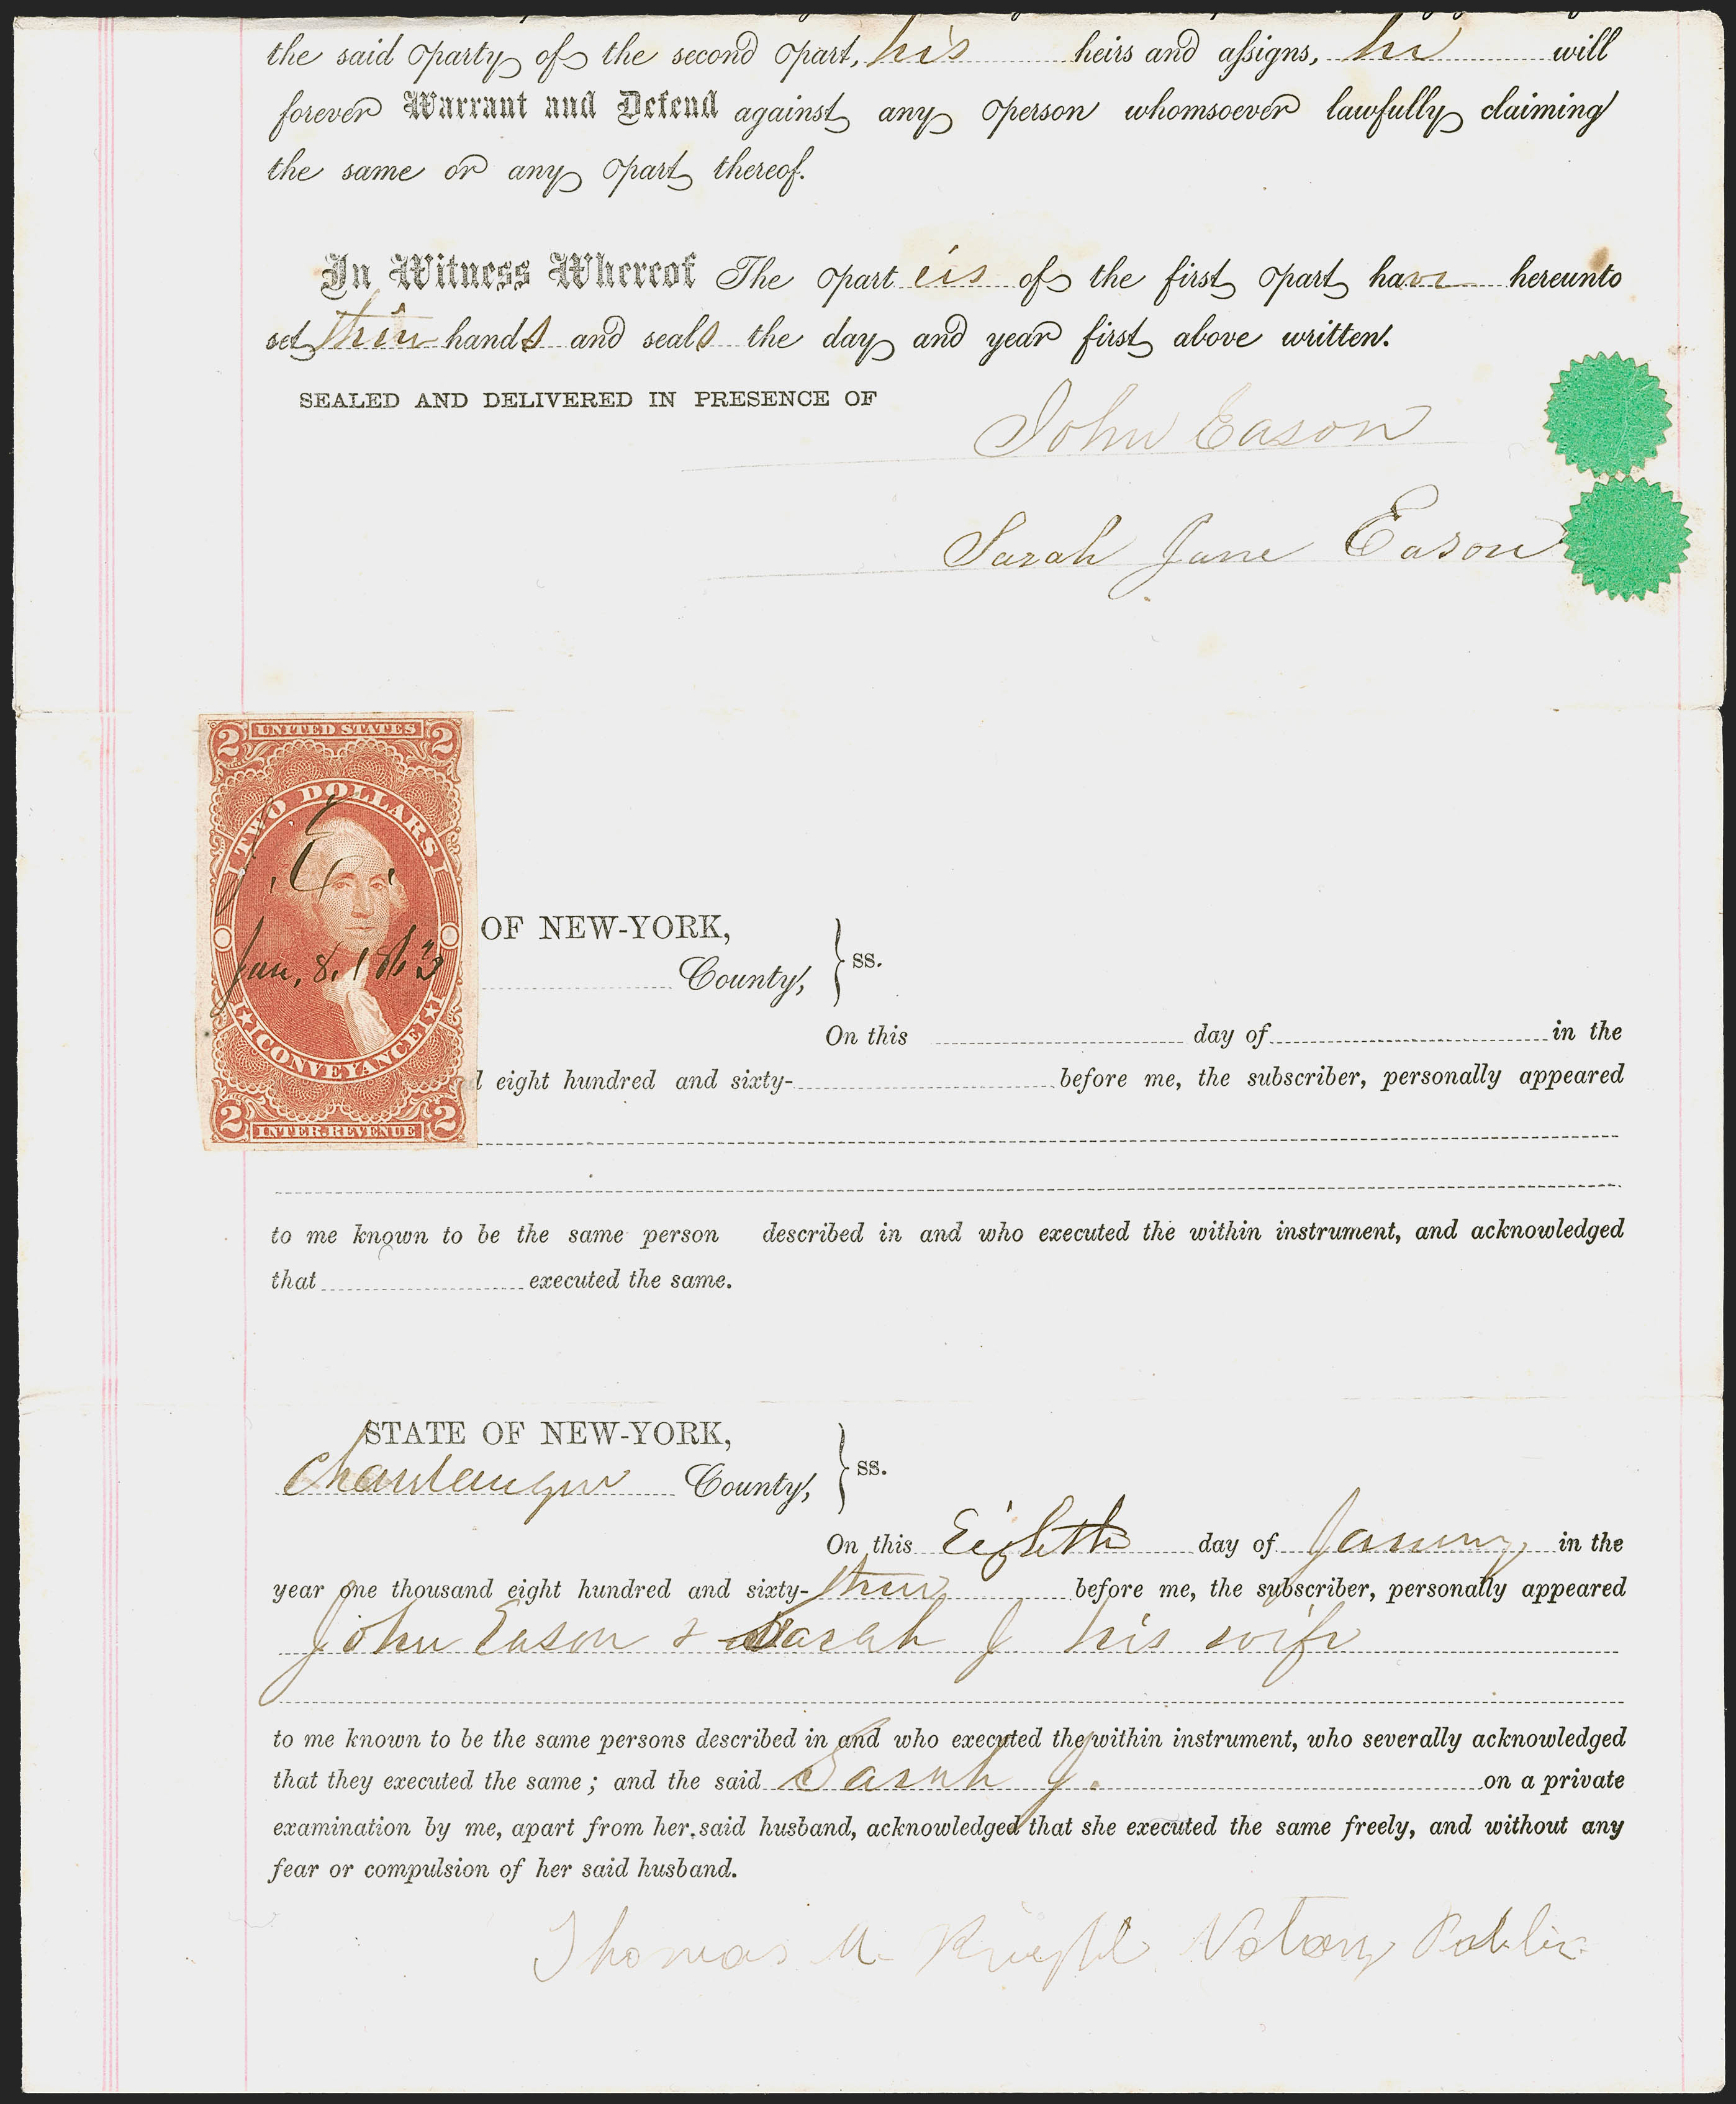 the said party of the second part, his heirs and assigns, he will
forever Warrant and Defend against any person whomsoever lawfully claiming
the same or any part thereof.
In Witness Whereof The parteis of the first part have hereunto
set their hands and seals the day and year first above written.
SEALED AND DELIVERED IN PRESENCE OF
John Eason
Sarah Jane Eason
2 UNITED STATES 2
TWO DOLLARS
J. E.
Jan. 8. 1863
CONVEYANCE
2 INTER. REVENUE 2
OF NEW-YORK,
County, } ss.
On this day of in the
d eight hundred and sixty- before me, the subscriber, personally appeared
to me known to be the same person described in and who executed the within instrument, and acknowledged
that executed the same.
STATE OF NEW-YORK,
Chautauqua County, } ss.
On this Eighth day of January in the
year one thousand eight hundred and sixty-three before me, the subscriber, personally appeared
John Eason & Sarah J his wife
to me known to be the same persons described in and who executed the within instrument, who severally acknowledged
that they executed the same; and the said Sarah J. on a private
examination by me, apart from her said husband, acknowledged that she executed the same freely, and without any
fear or compulsion of her said husband.
Thomas M Knight Notary Public